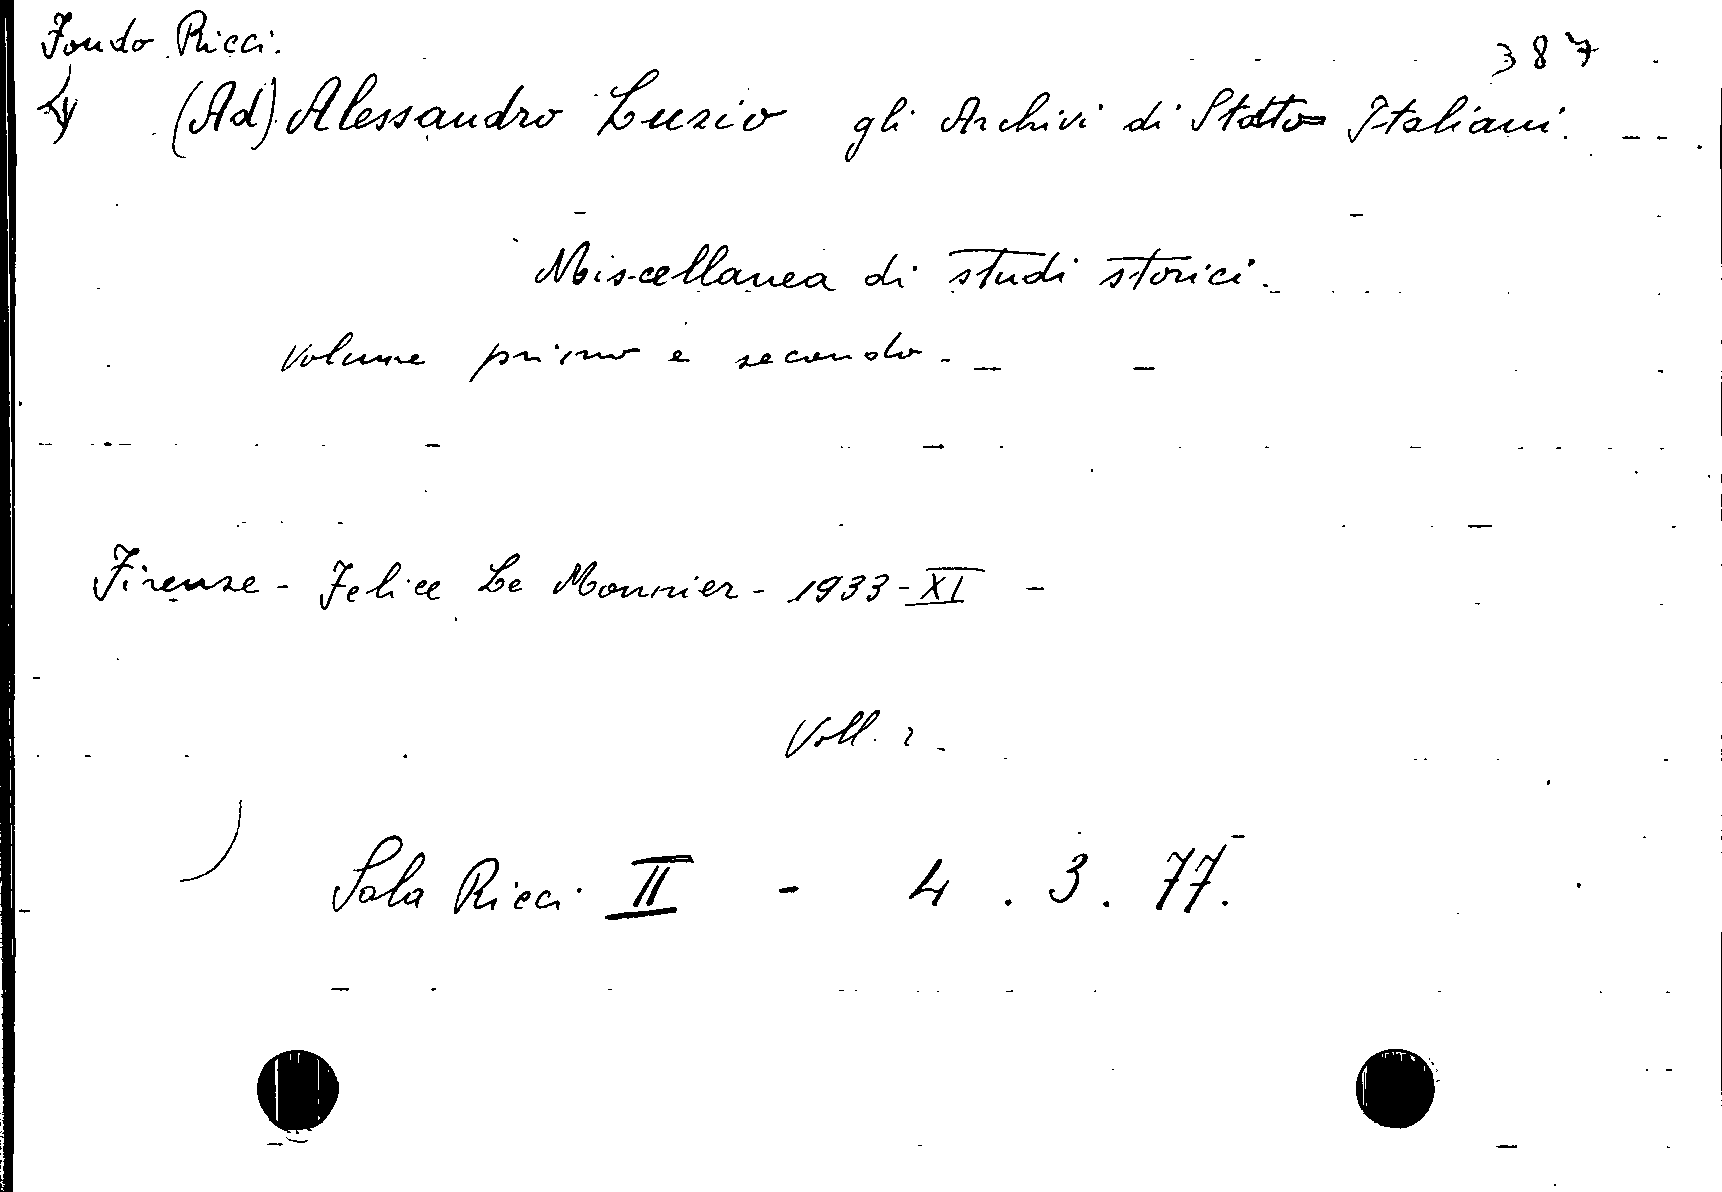 Fondo Ricci.
387
(Ad) Alessandro Luzio gli Archivi di Stato Italiani.
Miscellanea di studi storici.
Volume primo e secondo.
Firenze - Felice Le Monnier - 1933 - XI -
Voll. 2.
Sala Ricci II - 4.3.77.